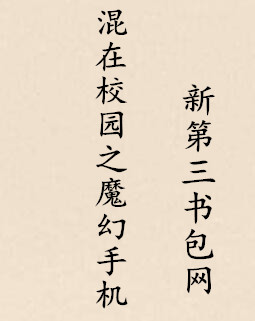 混在校园之魔幻手机
新第三书包网